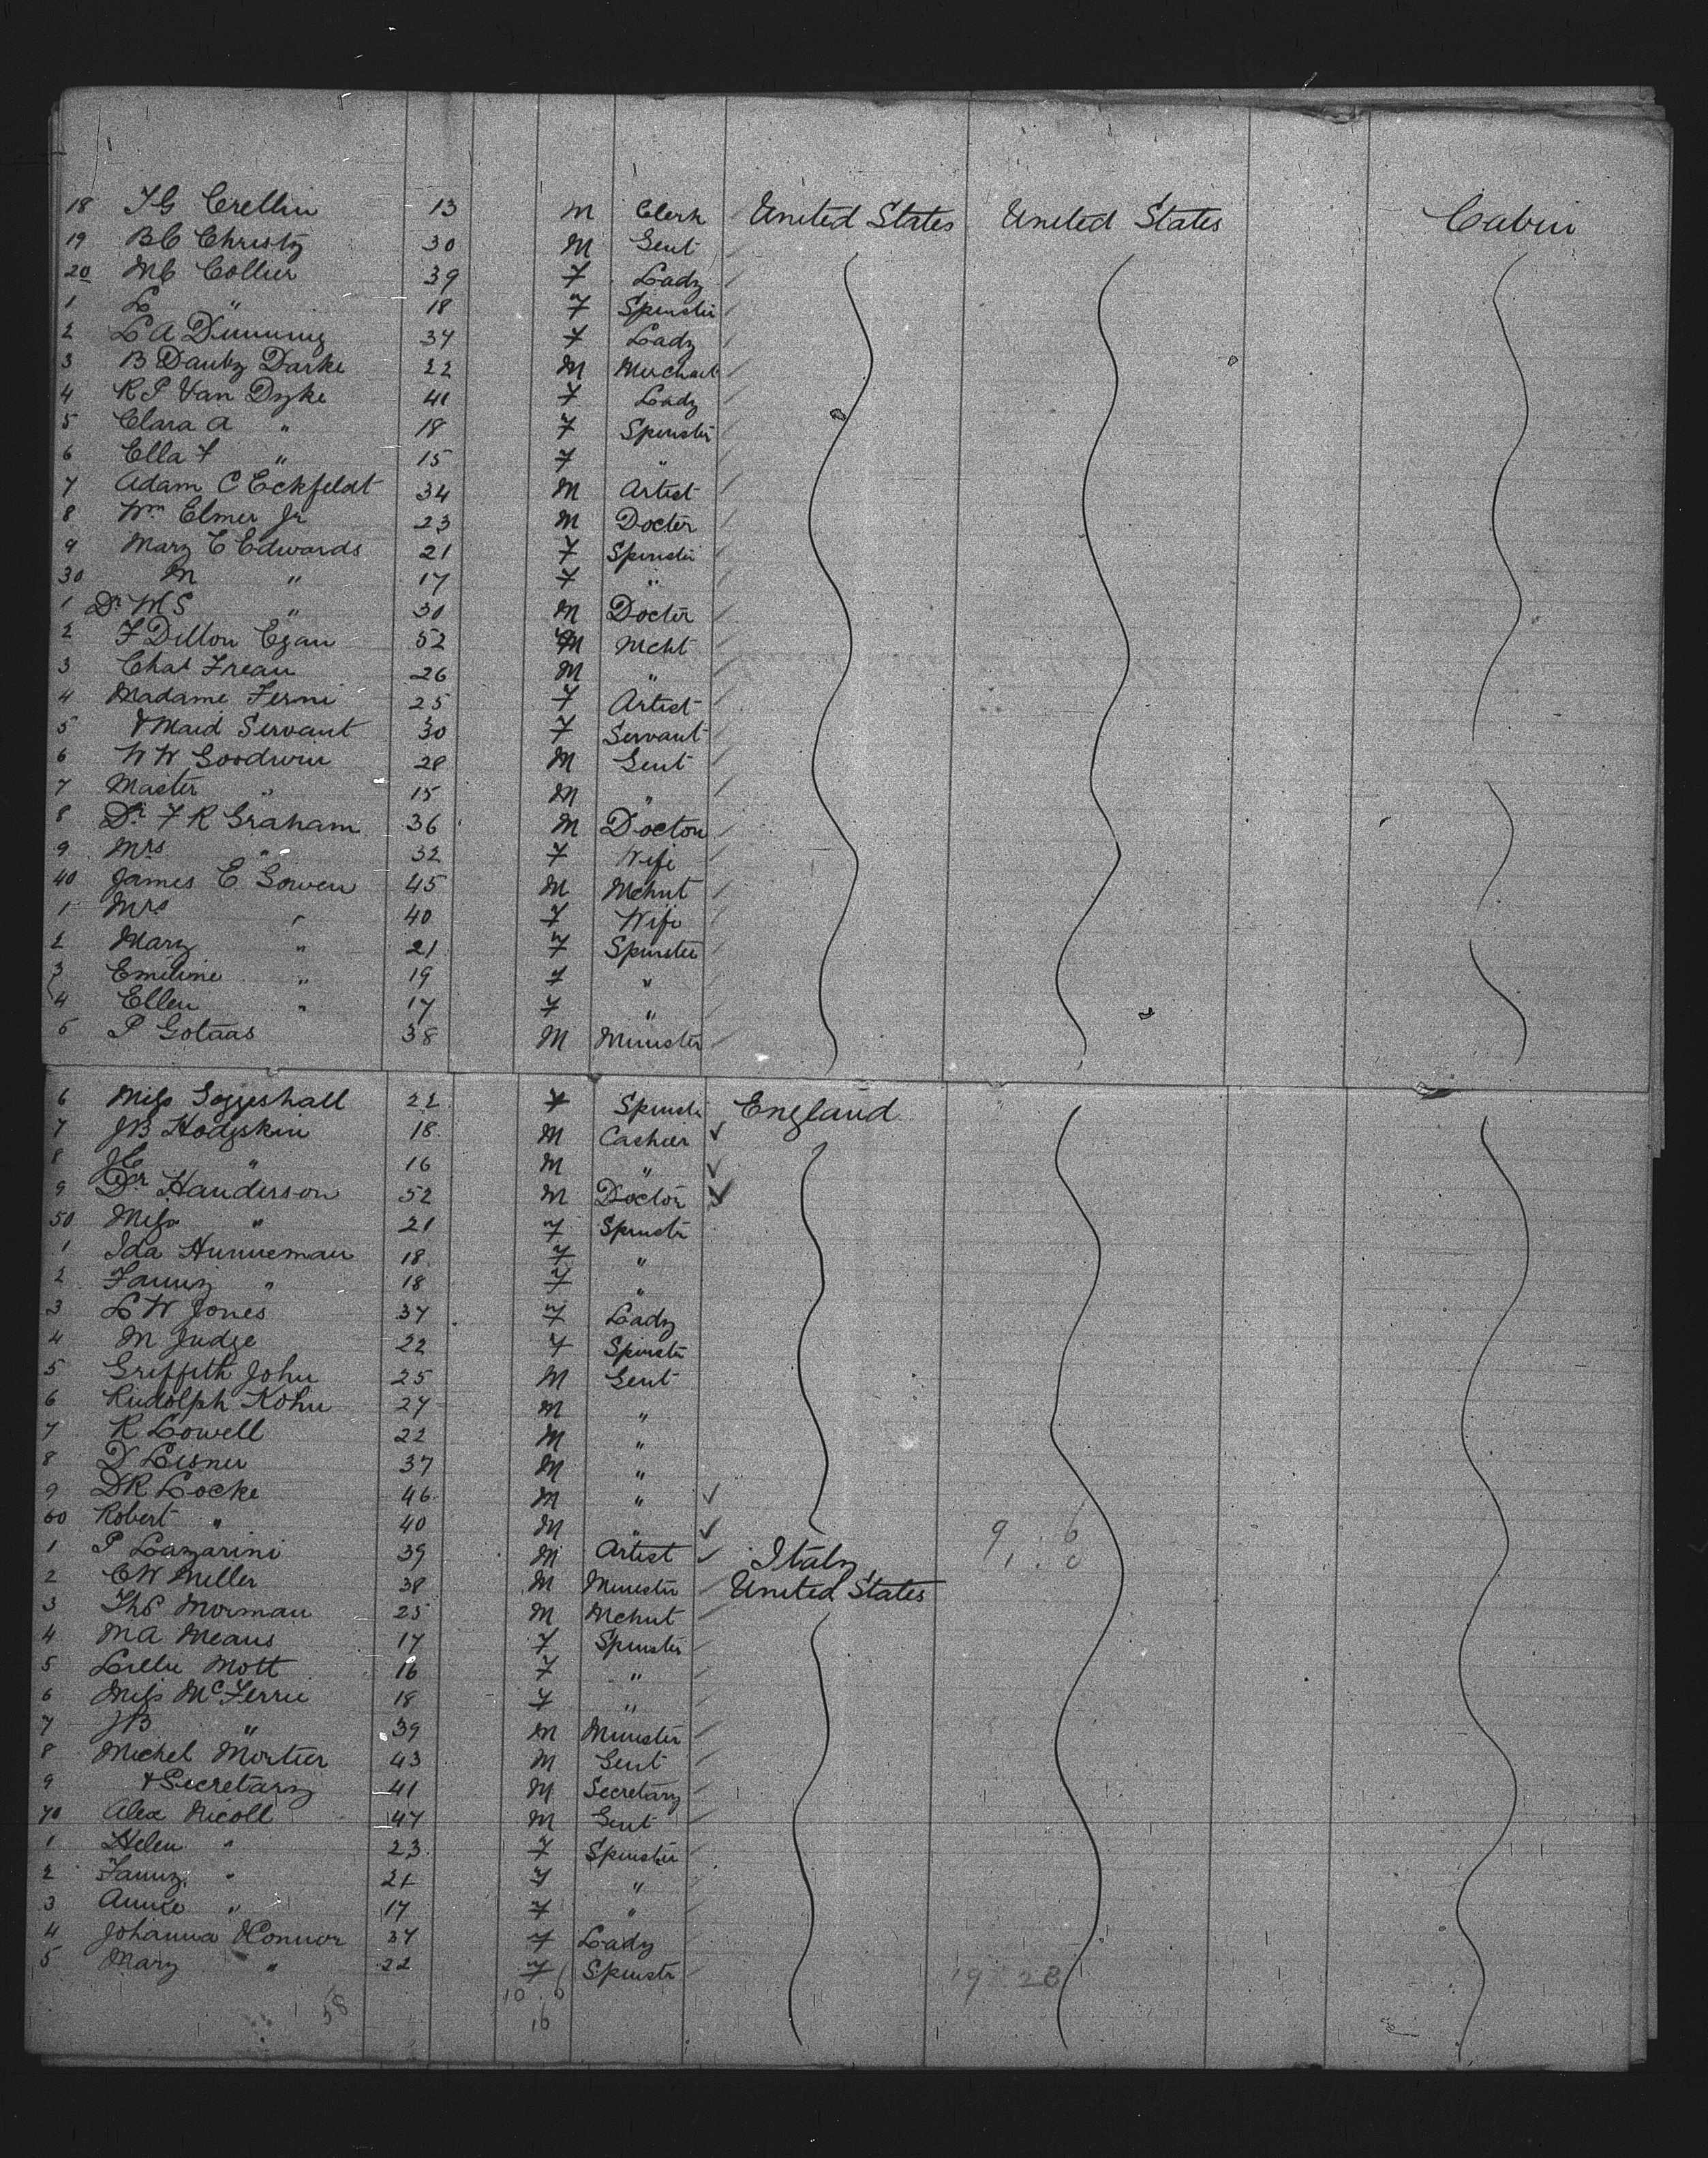 18 TG Crellin 13 M Clerk United States United States Cabin
19 BC Christy 30 M Gent
20 MC Collier 39 F Lady
1 L " 18 F Spinster
2 LA Dunning 34 F Lady
3 B Dautz Darke 22 M Merchant
4 RP Van Dyke 41 F Lady
5 Clara A " 18 F Spinster
6 Ella F " 15 F "
7 Adam C Eckfeldt 34 M Artist
8 Wm Elmer Jr 23 M Docter
9 Mary E Edwards 21 F Spinster
30 M " 17 F "
1 Dr WS " 30 M Docter
2 F Dillon Egan 52 M Mcht
3 Chas Freau 26 M "
4 Madame Fermi 25 F Artist
5 & Maid Servant 30 F Servant
6 WW Goodwin 28 M Gent
7 Master " 15 M "
8 Dr FR Graham 36 M Doctor
9 Mrs " 32 F Wife
40 James E Gowen 45 M Mchnt
1 Mrs " 40 F Wife
2 Mary " 21 F Spinster
3 Emiline " 19 F "
4 Ellen " 17 F "
5 P Gotaas 38 M Minister
6 Miss Goggeshall 22 F Spinstr England
7 JB Hodgskin 18 M Cashier
8 JC " 16 M "
9 Dr Handerson 52 M Doctor
50 Miss " 21 F Spinstr
1 Ida Hunneman 18 F "
2 Fanny " 18 F "
3 LW Jones 37 F Lady
4 M Judge 22 F Spinster
5 Griffith John 25 M Gent
6 Rudolph Kohn 27 M "
7 R Lowell 22 M "
8 D Lisner 37 M "
9 DR Locke 46 M "
60 Robert " 40 M "
1 P Lazarini 39 M Artist Italy
2 CW Miller 38 M Minister United States
3 Thos Morman 25 M Mchnt
4 MA Means 17 F Spinster
5 Lillie Mott 16 F "
6 Miss McFerrie 18 F "
7 JB " 39 M Minister
8 Michel Mortier 43 M Gent
9 & Secretary 41 M Secretary
70 Alex Nicoll 47 M Gent
1 Helen " 23 F Spinster
2 Fanny " 21 F "
3 Annie " 17 F "
4 Johanna OConnor 37 F Lady
5 Mary " 22 F Spinstr